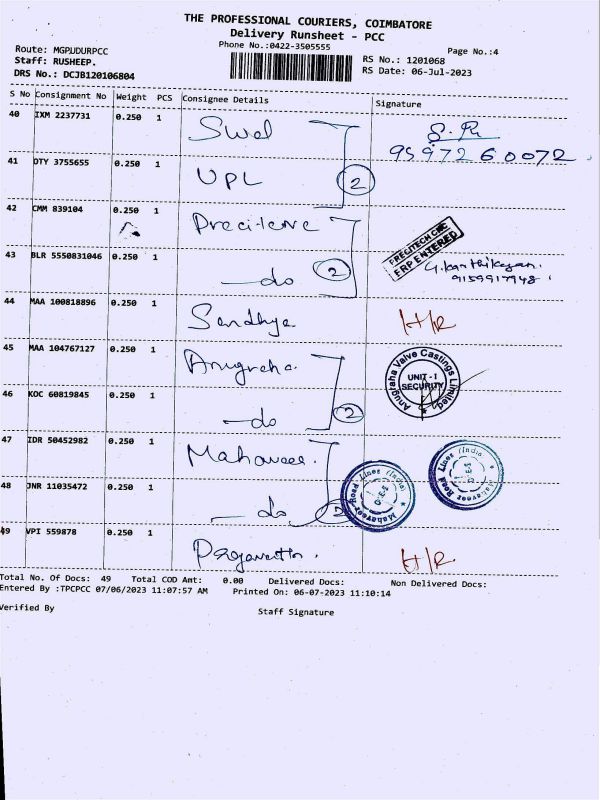 THE PROFESSIONAL COURIERS, COIMBATORE
Delivery Runsheet - PCC
Phone No.:0422-3505555
Page No.:4
Route: MGPUDURPCC
Staff: RUSHEEP.
DRS No.: DCJB120106804
RS No.: 1201068
RS Date: 06-Jul-2023
S No Consignment No Weight PCS Consignee Details Signature
40 IXM 2237731 0.250 1 Swel S. R
95972 60072
41 OTY 3755655 0.250 1 UPL 2
42 CMM 839104 0.250 1
PRECITECH CBE
ERP ENTERED
43 BLR 5550831046 0.250 1 —do 2 G. Karthikeyan.
9159917948
44 MAA 100818896 0.250 1 Sandhya H/R
45 MAA 104767127 0.250 1 Anugraha.
Anugraha Valve Castings Limited
UNIT-I
SECURITY
46 KOC 60819845 0.250 1 —do 2
47 IDR 50452982 0.250 1 Mahaveer.
Mahaveer Road Lines (India)
48 JNR 11035472 0.250 1 — do 2
Mahaveer Road Lines (India)
49 VPI 559878 0.250 1 H/R.
Total No. Of Docs: 49 Total COD Amt: 0.00 Delivered Docs: Non Delivered Docs:
Entered By :TPCPCC 07/06/2023 11:07:57 AM Printed On: 06-07-2023 11:10:14
Verified By Staff Signature